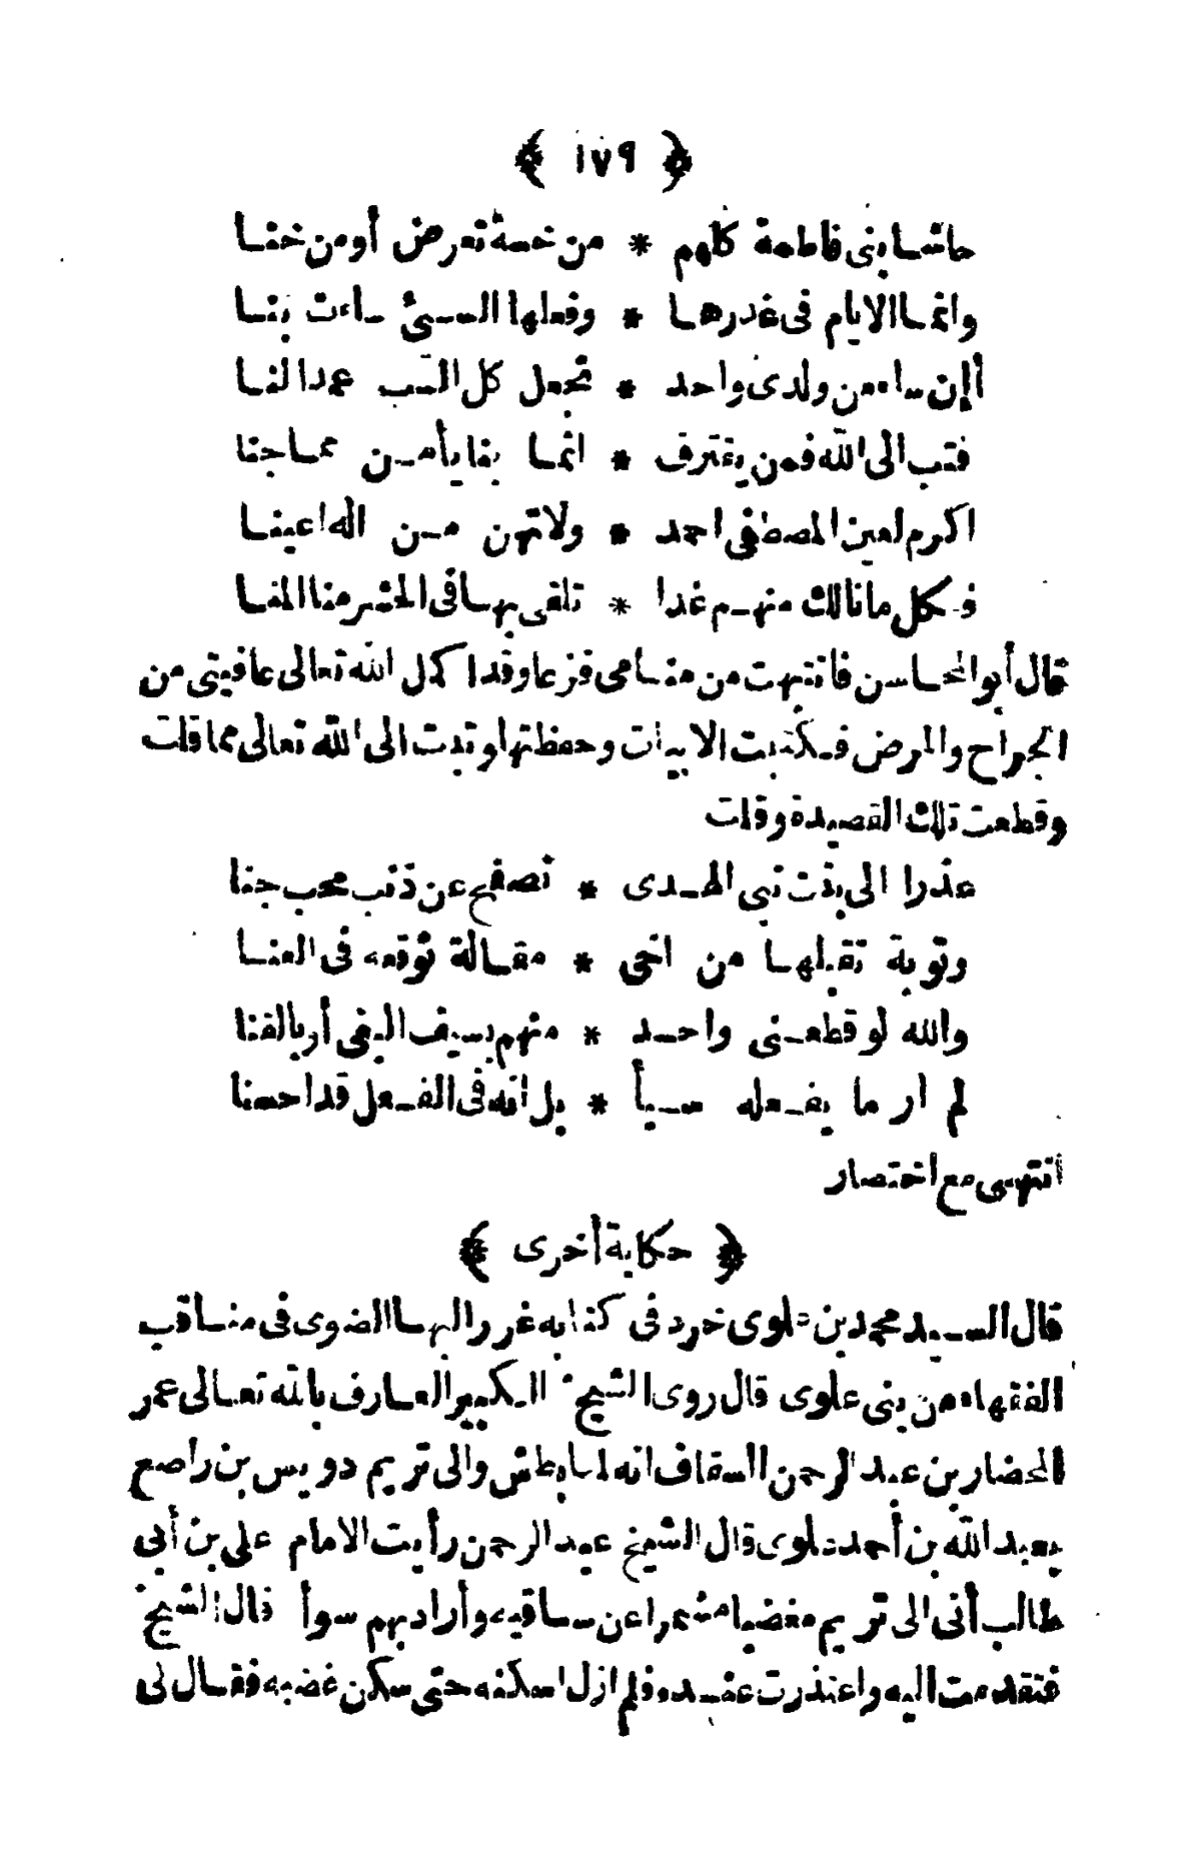 ﴿ ١٧٩ ﴾
حاشا بنى فاطمة كلهم * من خسة تعرض أو من خنا
وانما الايام فى غدرها * وفعلها السيئ ساءت بنا
أإن ساء من ولدى واحد * تجعل كل السب عمدا لنا
فتب الى الله فمن يقترف * اثما بنا يأمن مما جنا
اكرم لعين المصطفى احمد * ولا تهن من اله اعينا
فكل ما نالك منهم غدا * تلقى بها فى الحشر منا المنا
قال أبو المحاسن فانتبهت من منامى فزعا وقد اكمل الله تعالى عافيتى من
الجراح والمرض فكتبت الابيات وحفظتها وتبت الى الله تعالى مما قلت
وقطعت تلك القصيدة وقلت
عذرا الى بنت نبى الهدى * تصفح عن ذنب محب جنا
وتوبة تقبلها من اخى * مقالة توقعه فى العنا
والله لو قطعنى واحد * منهم بسيف البغى أو بالقنا
لم ار ما يفعله سيأ * بل انه فى الفعل قد احسنا
انتهى مع اختصار
﴿ حكاية أخرى ﴾
قال السيد محمد بن علوى خرد فى كتابه غرر البها الضوى فى مناقب
الفقهاء من بنى علوى قال روى الشيخ الكبير العارف بالله تعالى عمر
المحضار بن عبد الرحمن السقاف انه لما بطش والى تريم دويس بن راصع
بعبد الله بن أحمد علوى قال الشيخ عبد الرحمن رأيت الامام على بن أبى
طالب أتى الى تريم مغضبا مشمرا عن ساقيه وأراد بهم سوأ قال الشيخ
فتقدمت اليه واعتذرت عنده فلم ازل اسكنه حتى سكن غضبه فقال لى